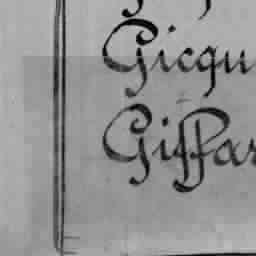 Gicqu
Giffar